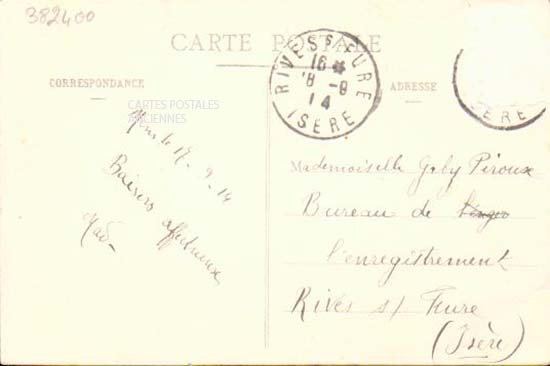 382400
CARTE POSTALE
CORRESPONDANCE
ADRESSE
RIVES S/ FURE
16
18 - 9
14
ISÈRE
ISÈRE
CARTES POSTALES
ANCIENNES
le 17 - 9 - 14
Baisers affectueux
Mad
Mademoiselle Gaby Piroux
Bureau de
l'enregistrement
Rives s/ Fure
(Isère)